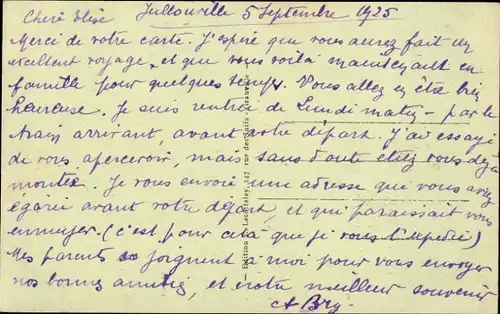 Chère Elise Jullouville 5 Septembre 1925
Merci de votre carte. J'espère que vous aurez fait un
excellent voyage, et que vous voilà maintenant en
famille pour quelques temps. Vous allez en être bien
heureuse. Je suis rentrée de Lundi matin par le
train arrivant, avant votre départ. J'ai essayé
de vous apercevoir, mais sans doute étiez vous déjà
montée. Je vous envoie une adresse que vous aviez
égarée avant votre départ, et qui paraissait vous
ennuyer (c'est pour cela que je vous l'expédie)
Mes parents se joignent à moi pour vous envoyer
nos bonnes amitiés, et notre meilleur souvenir
A Bry